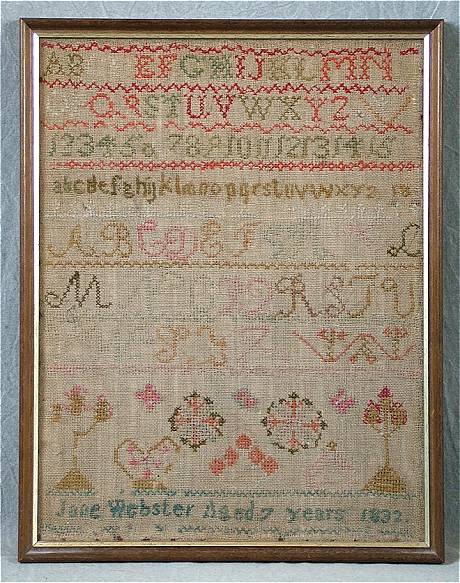 AB EFGHIJKLMN
QRSTUVWXYZ
123456 789101112131415
abcdefghijklmnopqrstuvwxyz 18
ABCDEF L
M QRSTU
Z
Jane Webster Aged 7 years 1832